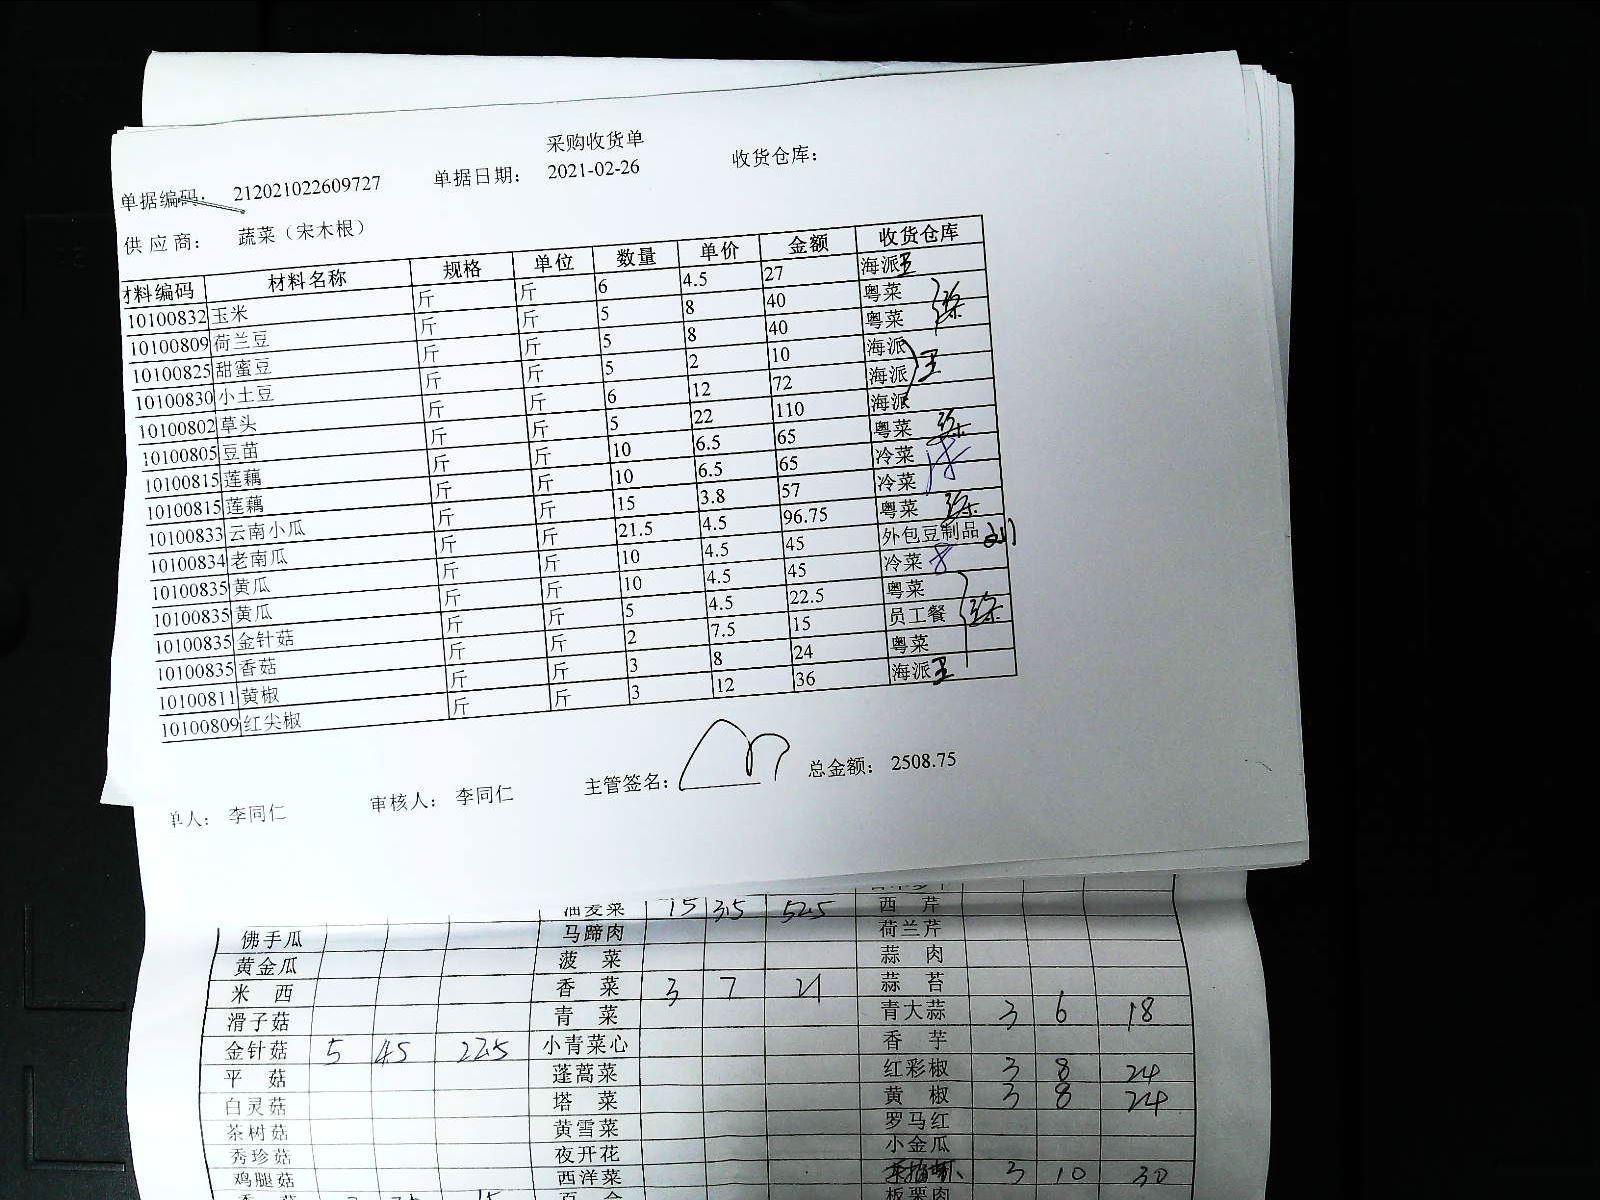 采购收货单
单据编码： 212021022609727 单据日期： 2021-02-26 收货仓库：
供应商： 蔬菜（宋木根）
材料编码 材料名称 规格 单位 数量 单价 金额 收货仓库
10100832 玉米 斤 斤 6 4.5 27 海派 王
10100809 荷兰豆 斤 斤 5 8 40 粤菜
10100825 甜蜜豆 斤 斤 5 8 40 粤菜
10100830 小土豆 斤 斤 5 2 10 海派
10100802 草头 斤 斤 6 12 72 海派 王
10100805 豆苗 斤 斤 5 22 110 海派
10100815 莲藕 斤 斤 10 6.5 65 粤菜
10100815 莲藕 斤 斤 10 6.5 65 冷菜
10100833 云南小瓜 斤 斤 15 3.8 57 冷菜
10100834 老南瓜 斤 斤 21.5 4.5 96.75 粤菜
10100835 黄瓜 斤 斤 10 4.5 45 外包豆制品
10100835 黄瓜 斤 斤 10 4.5 45 冷菜
10100835 金针菇 斤 斤 5 4.5 22.5 粤菜
10100835 香菇 斤 斤 2 7.5 15 员工餐
10100811 黄椒 斤 斤 3 8 24 粤菜
10100809 红尖椒 斤 斤 3 12 36 海派 王
单人： 李同仁 审核人： 李同仁 主管签名： 总金额： 2508.75
油麦菜 15 3.5 52.5 西芹
佛手瓜 马蹄肉 荷兰芹
黄金瓜 菠菜 蒜肉
米西 香菜 3 7 21 蒜苔
滑子菇 青菜 青大蒜 3 6 18
金针菇 5 4.5 22.5 小青菜心 香芋
平菇 蓬蒿菜 红彩椒 3 8 24
白灵菇 塔菜 黄椒 3 8 24
茶树菇 黄雪菜 罗马红
秀珍菇 夜开花 小金瓜
鸡腿菇 西洋菜 3 10 30
香菇 2 7.5 15 百合 板栗肉